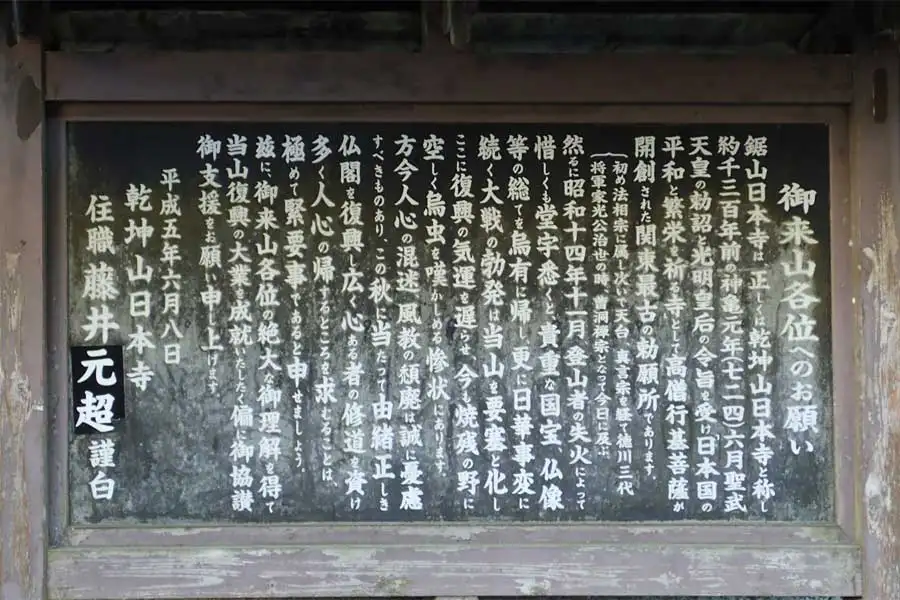 御来山各位へのお願い
鋸山日本寺は正しくは乾坤山日本寺と称し
約千三百年前の神亀元年(七二四)六月聖武
天皇の勅詔と光明皇后の令旨を受け日本国の
平和と繁栄を祈る寺として高僧行基菩薩が
開創された関東最古の勅願所であります。
(初め法相宗に属し次いで天台、真言宗を経て徳川三代
将軍家光公治世の時、曹洞禅宗となって今日に及ぶ。
然るに昭和十四年十一月登山者の失火によって
惜しくも堂宇悉くと、貴重な国宝、仏像
等の総てを烏有に帰し、更に日華事変に
続く大戦の勃発は当山を要塞と化し
ここに復興の気運を遅らせ、今も焼残の野に
空しく烏虫を嘆かしめる惨状にあります。
方今人心の混迷、風教の頽廃は誠に憂慮
すべきものあり、この秋に当たって由緒正しき
仏閣を復興し広く心ある者の修道を資け
多く人心の帰するところを求むることは、
極めて緊要事であると申せましょう。
玆に、御来山各位の絶大な御理解を得て
当山復興の大業を成就いたしたく偏に御協讃
御支援をお願い申し上げます
平成五年六月八日
乾坤山日本寺
住職藤井元超謹白